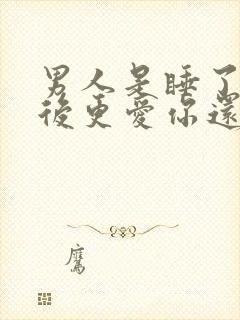 男人是睡了
後更愛你還
鷹